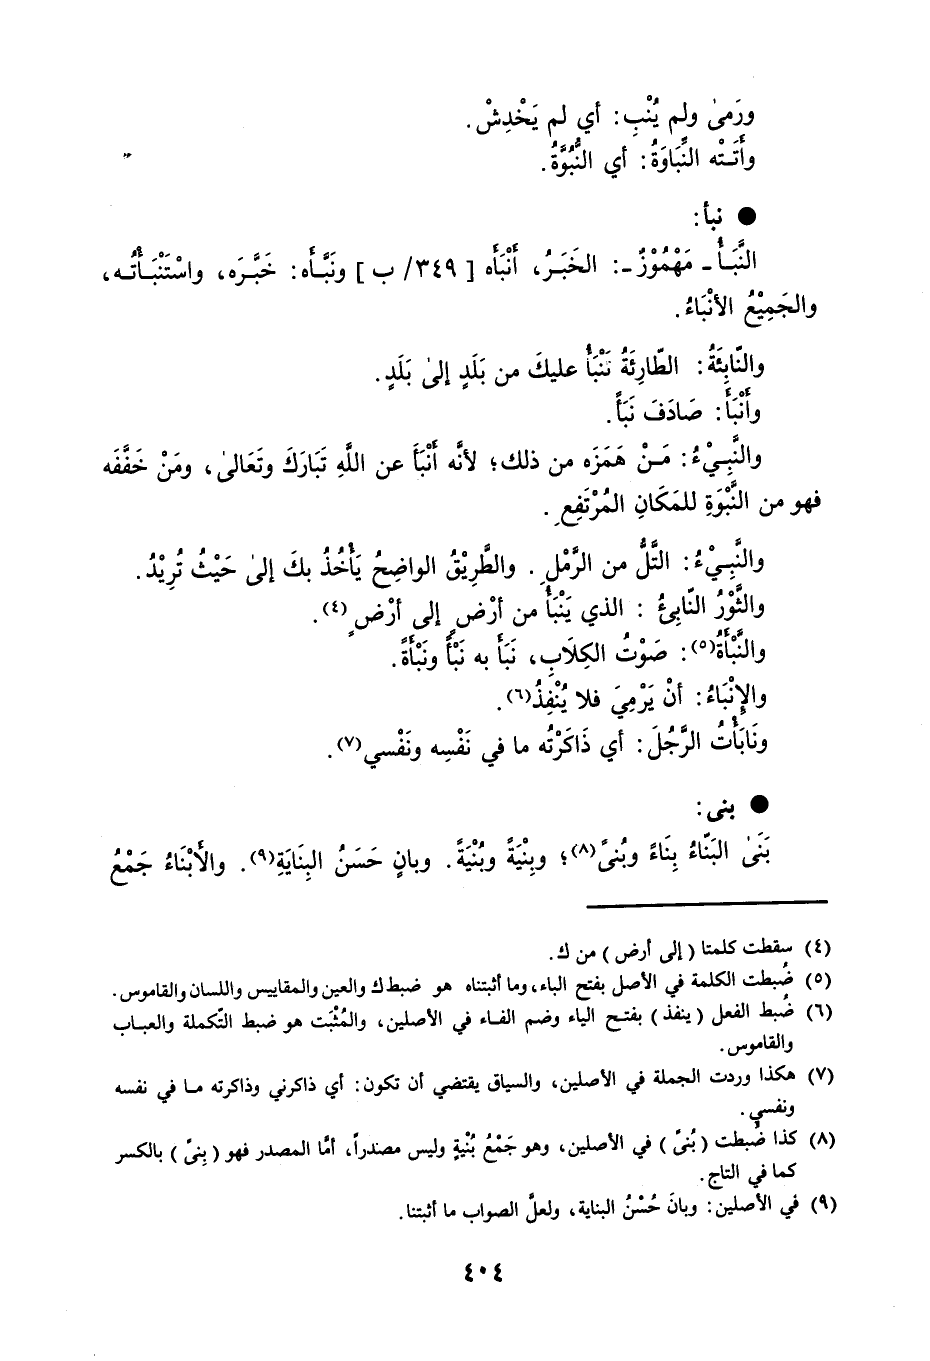 ورَمىٰ ولم يُنْبِ: أي لم يَخْدِشْ.
وأَتَـتْه النِّبَاوَةُ: أي النُّبُوَّةُ.
● نبأ:
النَّبَـأُ ـ مَهْمُوْزٌ ـ: الخَبَرُ، أنْبَأه [ ٣٤٩/ ب ] ونَبَّـأَه: خَبَّرَه، واسْتَنْبَـأْتُـه،
والجَمِيْعُ الأنْبَاءُ.
والنّابِئَةُ: الطّارِئَةُ تَنْبَأُ عليكَ من بَلَدٍ إلىٰ بَلَدٍ.
وأَنْبَأَ: صَادَفَ نَبَأً.
والنَّبِـيْءُ: مَـنْ هَمَزَه من ذلك؛ لأنَّه أنْبَأَ عن اللَّهِ تَبَارَكَ وتَعَالىٰ، ومَنْ خَفَّفَه
فهو من النَّبْوَةِ للمَكَانِ المُرْتَفِعِ.
والنَّبِيْءُ: التَّلُّ من الرَّمْلِ. والطَّرِيْقُ الواضِحُ يَأْخُذُ بكَ إلىٰ حَيْثُ تُرِيْدُ.
والثَّوْرُ النّابِئُ : الذي يَنْبَأُ من أرْضٍ إلى أرْضٍ(٤).
والنَّبْأَةُ(٥): صَوْتُ الكِلَابِ، نَبَأَ به نَبْأً ونَبْأَةً.
والإِنْبَاءُ: أنْ يَرْمِيَ فلا يُنْفِذُ(٦).
ونَابَأْتُ الرَّجُلَ: أي ذَاكَرْتُه ما في نَفْسِه ونَفْسي(٧).
● بنى:
بَنَىٰ البَنّاءُ بِنَاءً وبُنىً(٨)؛ وبِنْيَةً وبُنْيَةً. وبانٍ حَسَنُ البِنَايَةِ(٩). والأَبْنَاءُ جَمْعُ
(٤) سقطت كلمتا (إلى أرض) من ك.
(٥) ضُبطت الكلمة في الأصل بفتح الباء، وما أثبتناه هو ضبط ك والعين والمقاييس واللسان والقاموس.
(٦) ضُبط الفعل (ينفذ) بفتـح الياء وضم الفـاء في الأصلين، والمُثْبَت هو ضبط التّكملة والعباب
والقاموس.
(٧) هكذا وردت الجملة في الأصلين، والسياق يقتضي أن تكون: أي ذاكرني وذاكرته مـا في نفسه
ونفسي.
(٨) كذا ضُبطت (بُنىً) في الأصلين، وهو جَمْعُ بُنْيةٍ وليس مصدراً، أمّا المصدر فهو (بِنىً) بالكسر
كما في التاج.
(٩) في الأصلين: وبانَ حُسْنُ البناية، ولعلَّ الصواب ما أثبتنا.
٤٠٤